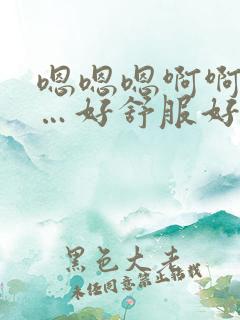 嗯嗯嗯啊啊
…好舒服好
黑色大老
未经同意禁止转载